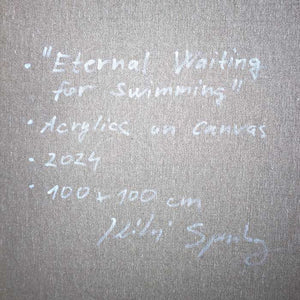 • "Eternal Waiting
for Swimming"
• Acrylics on Canvas
• 2024
• 100 x 100 cm